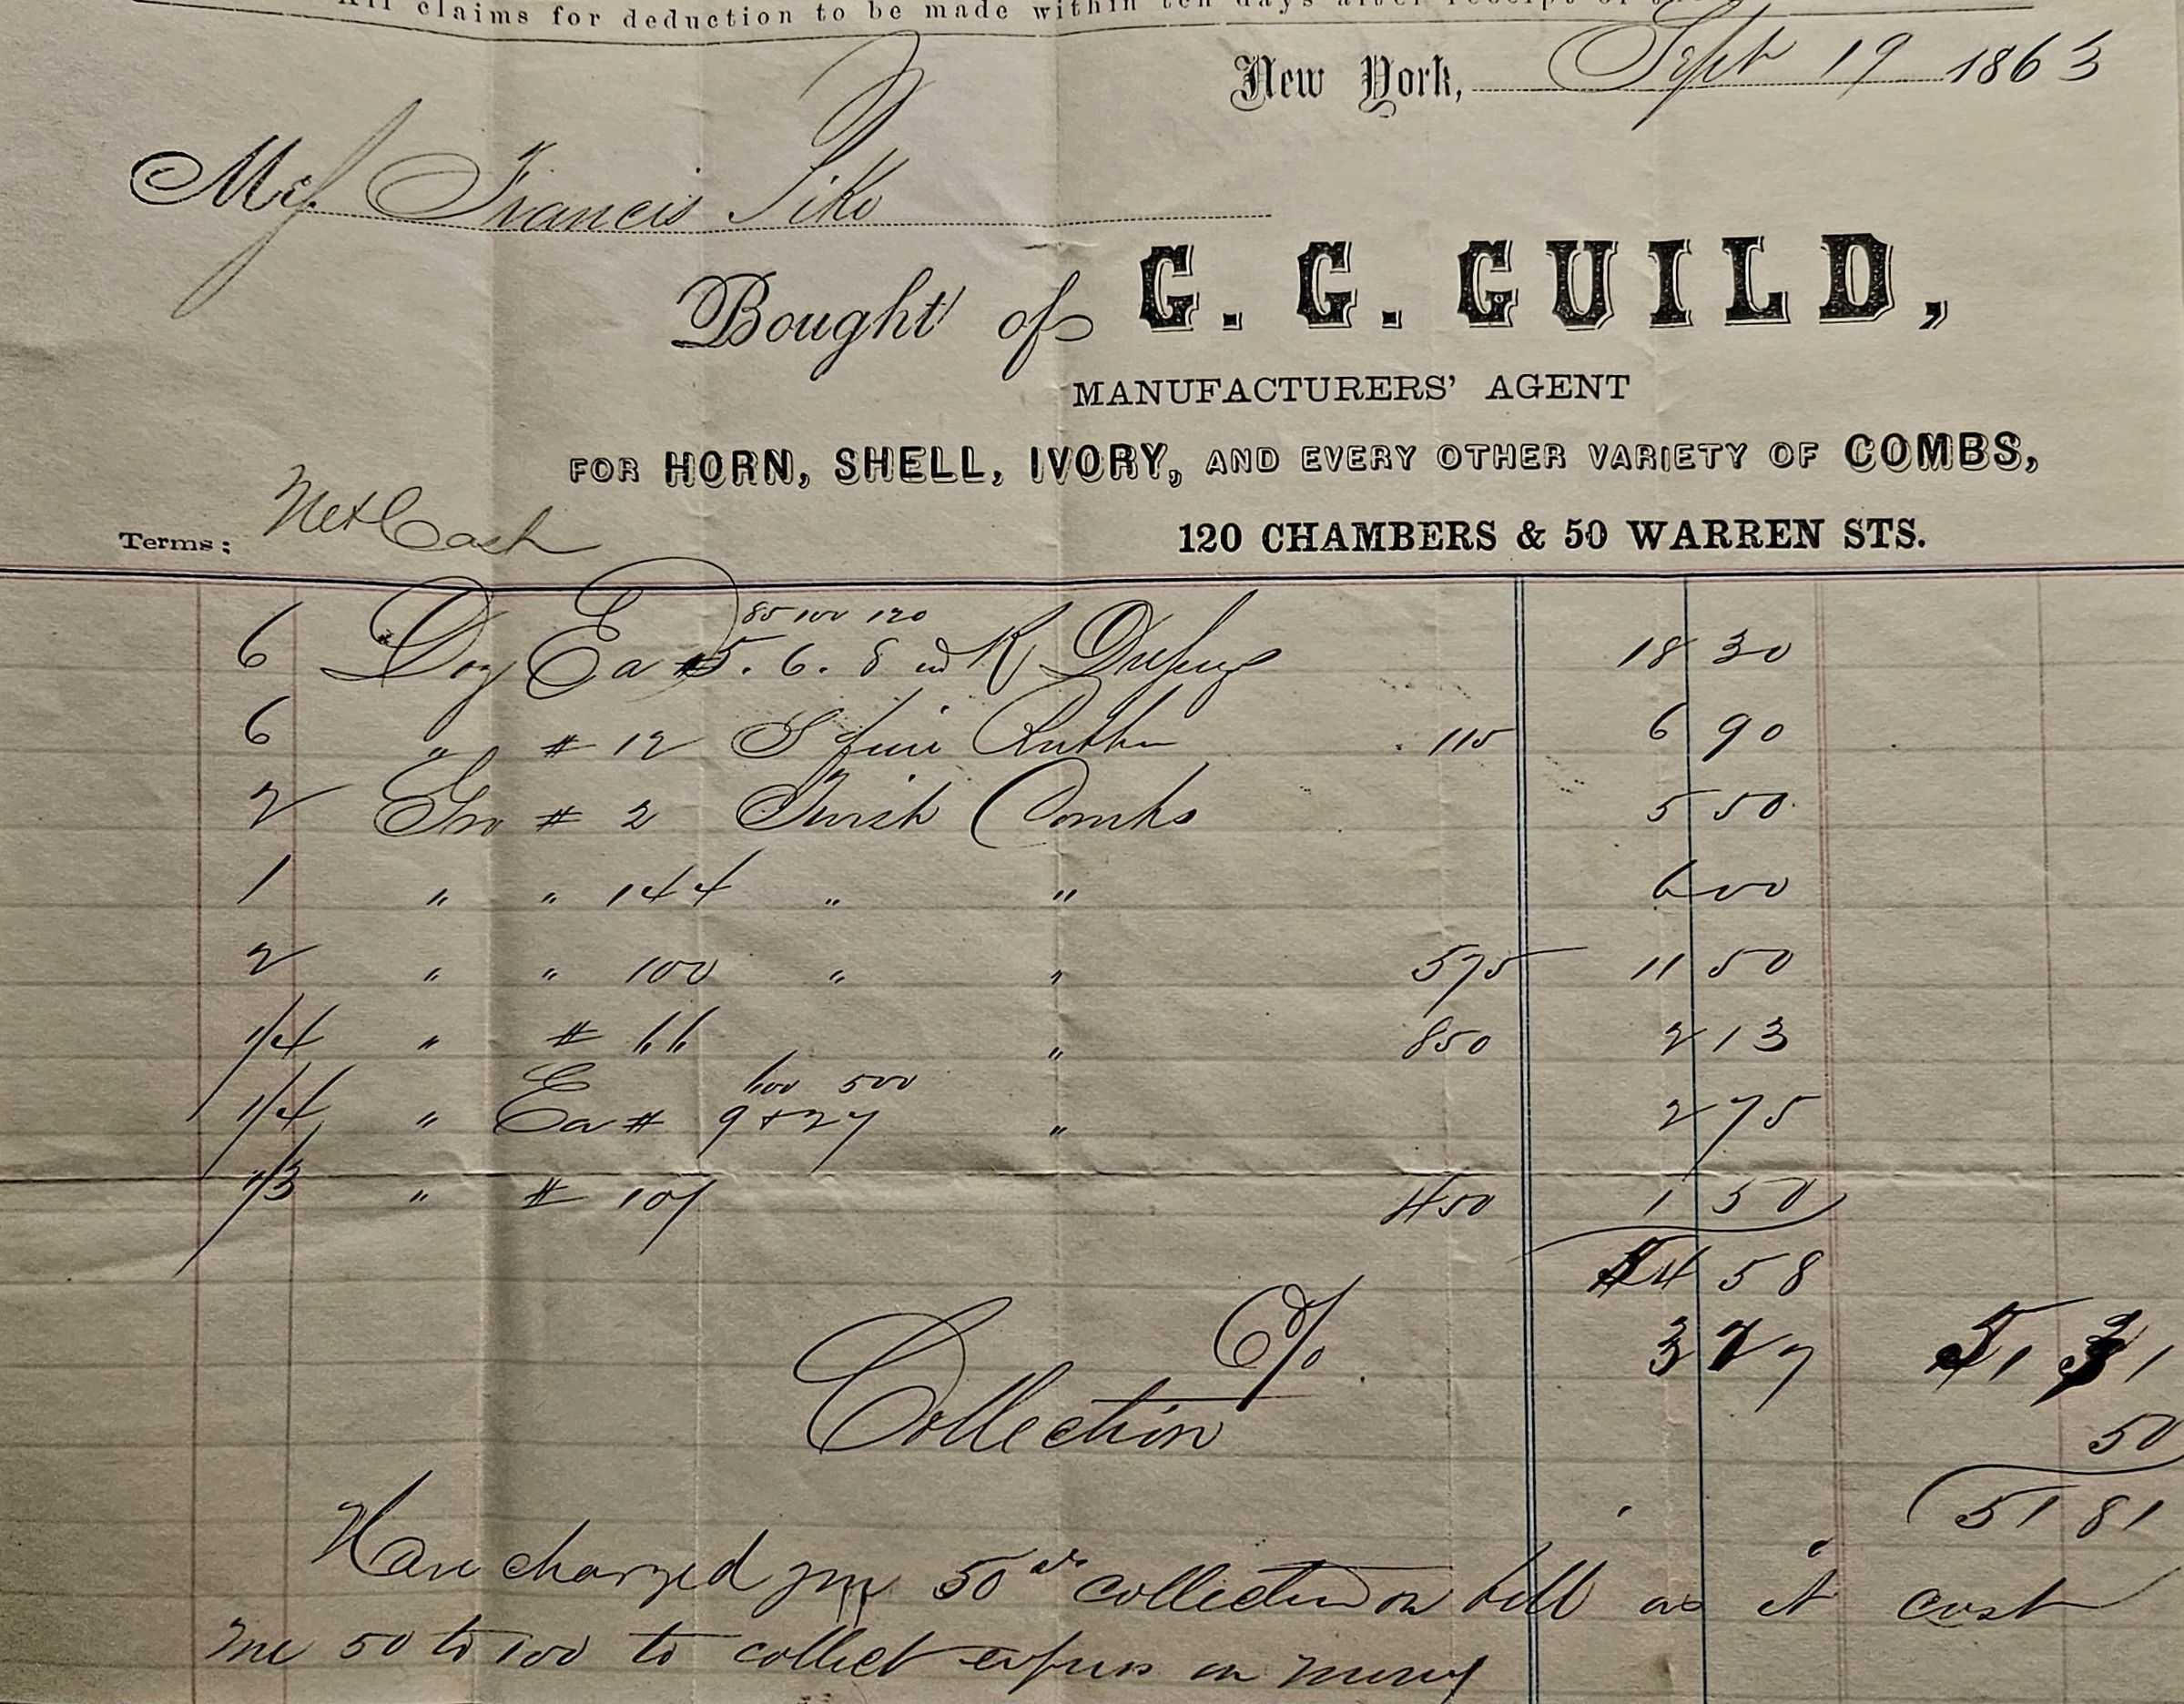 All claims for deduction to be made within ten days after receipt of
New York, Sept 19 1863
Francis
Bought of G. G. GUILD,
MANUFACTURERS' AGENT
FOR HORN, SHELL, IVORY, AND EVERY OTHER VARIETY OF COMBS,
Terms: Net Cash
120 CHAMBERS & 50 WARREN STS.
85 100 120
6 Doz Ea # 5. 6. 8 R 18 30
6 " # 12 115 6 90
2 Gro # 2 Combs 5 50
1 " " 144 " " 6 00
2 " " 100 " " 575 11 50
1/4 " # 66 " 850 2 13
600 500
1/4 " Ea # 9 & 27 " 2 75
1/3 " # 107 450 1 50
54 58
6% 3 27 51 31
Collection 50
51 81
Have charged you 50 cts collection on bill as it cost
me 50 to 100 to collect express on money